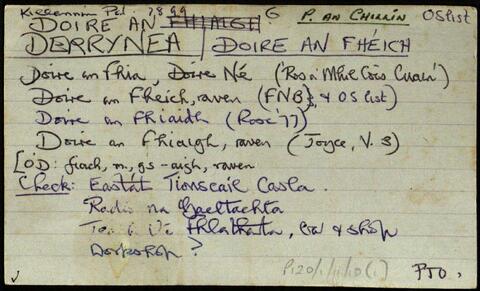 Killannin Pd. 7899 G P. an Chillín OS list
DOIRE AN FHIAIGH
DERRYNEA | DOIRE AN FHÉICH
Doire an Fhia, Doire Né ('Ros a' Mhíl Cois Cuain')
Doire an Fheich, raven (FNB & OS list)
Doire an Fhiaidh (Rosc '77)
Doire an Fhiaigh, raven (Joyce, V. 3)
[OD: fiach, m, gs -aigh, raven
Check: Eastát Tionscail Casla.
Radio na Gaeltachta
Uí Fhlatharta, & shop
Workshop?
P120/1/1/10(1) PTO.